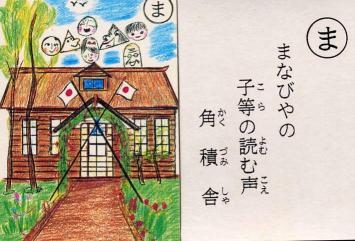 ま
ま
まなびやの
子等の読む声
角積舎
こら
よむ
こえ
かく
づみ
しゃ